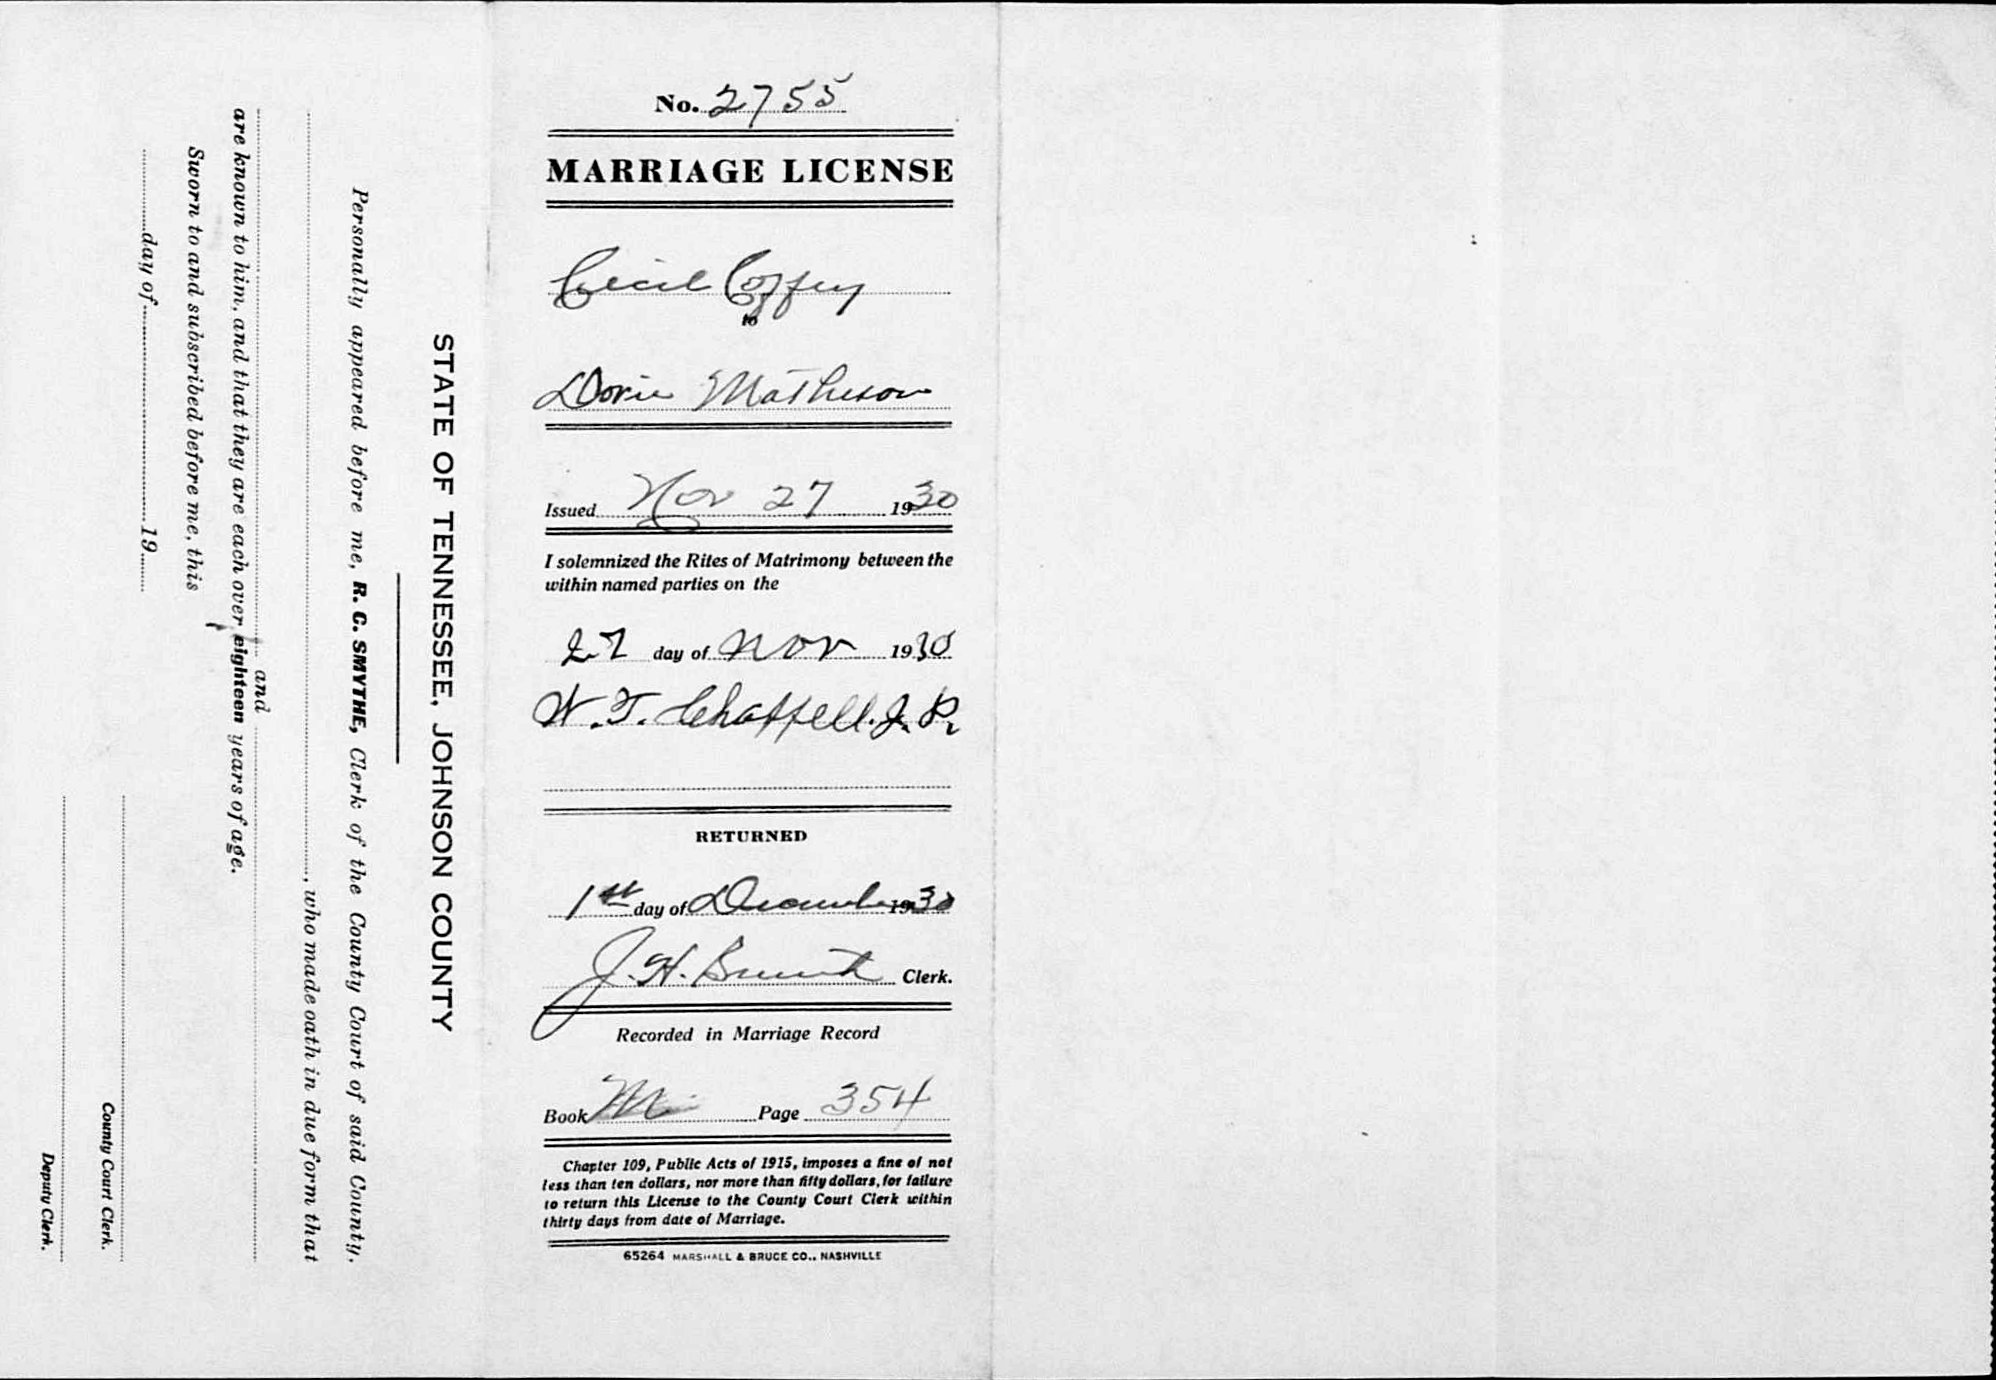 STATE OF TENNESSEE, JOHNSON COUNTY
Personally appeared before me, R. C. SMYTHE, Clerk of the County Court of said County,
, who made oath in due form that
and
are known to him, and that they are each over eighteen years of age.
Sworn to and subscribed before me, this
day of 19
County Court Clerk.
Deputy Clerk.
No. 2755
MARRIAGE LICENSE
Cecil Coffey
to
Dovie Matheson
Issued Nov 27 1930
I solemnized the Rites of Matrimony between the
within named parties on the
27 day of Nov 1930
W. T. Chappell. J. P.
RETURNED
1st day of December 1930
J. H. Clerk.
Recorded in Marriage Record
Book Page 354
Chapter 109, Public Acts of 1915, imposes a fine of not
less than ten dollars, nor more than fifty dollars, for failure
to return this License to the County Court Clerk within
thirty days from date of Marriage.
65264 MARSHALL & BRUCE CO., NASHVILLE